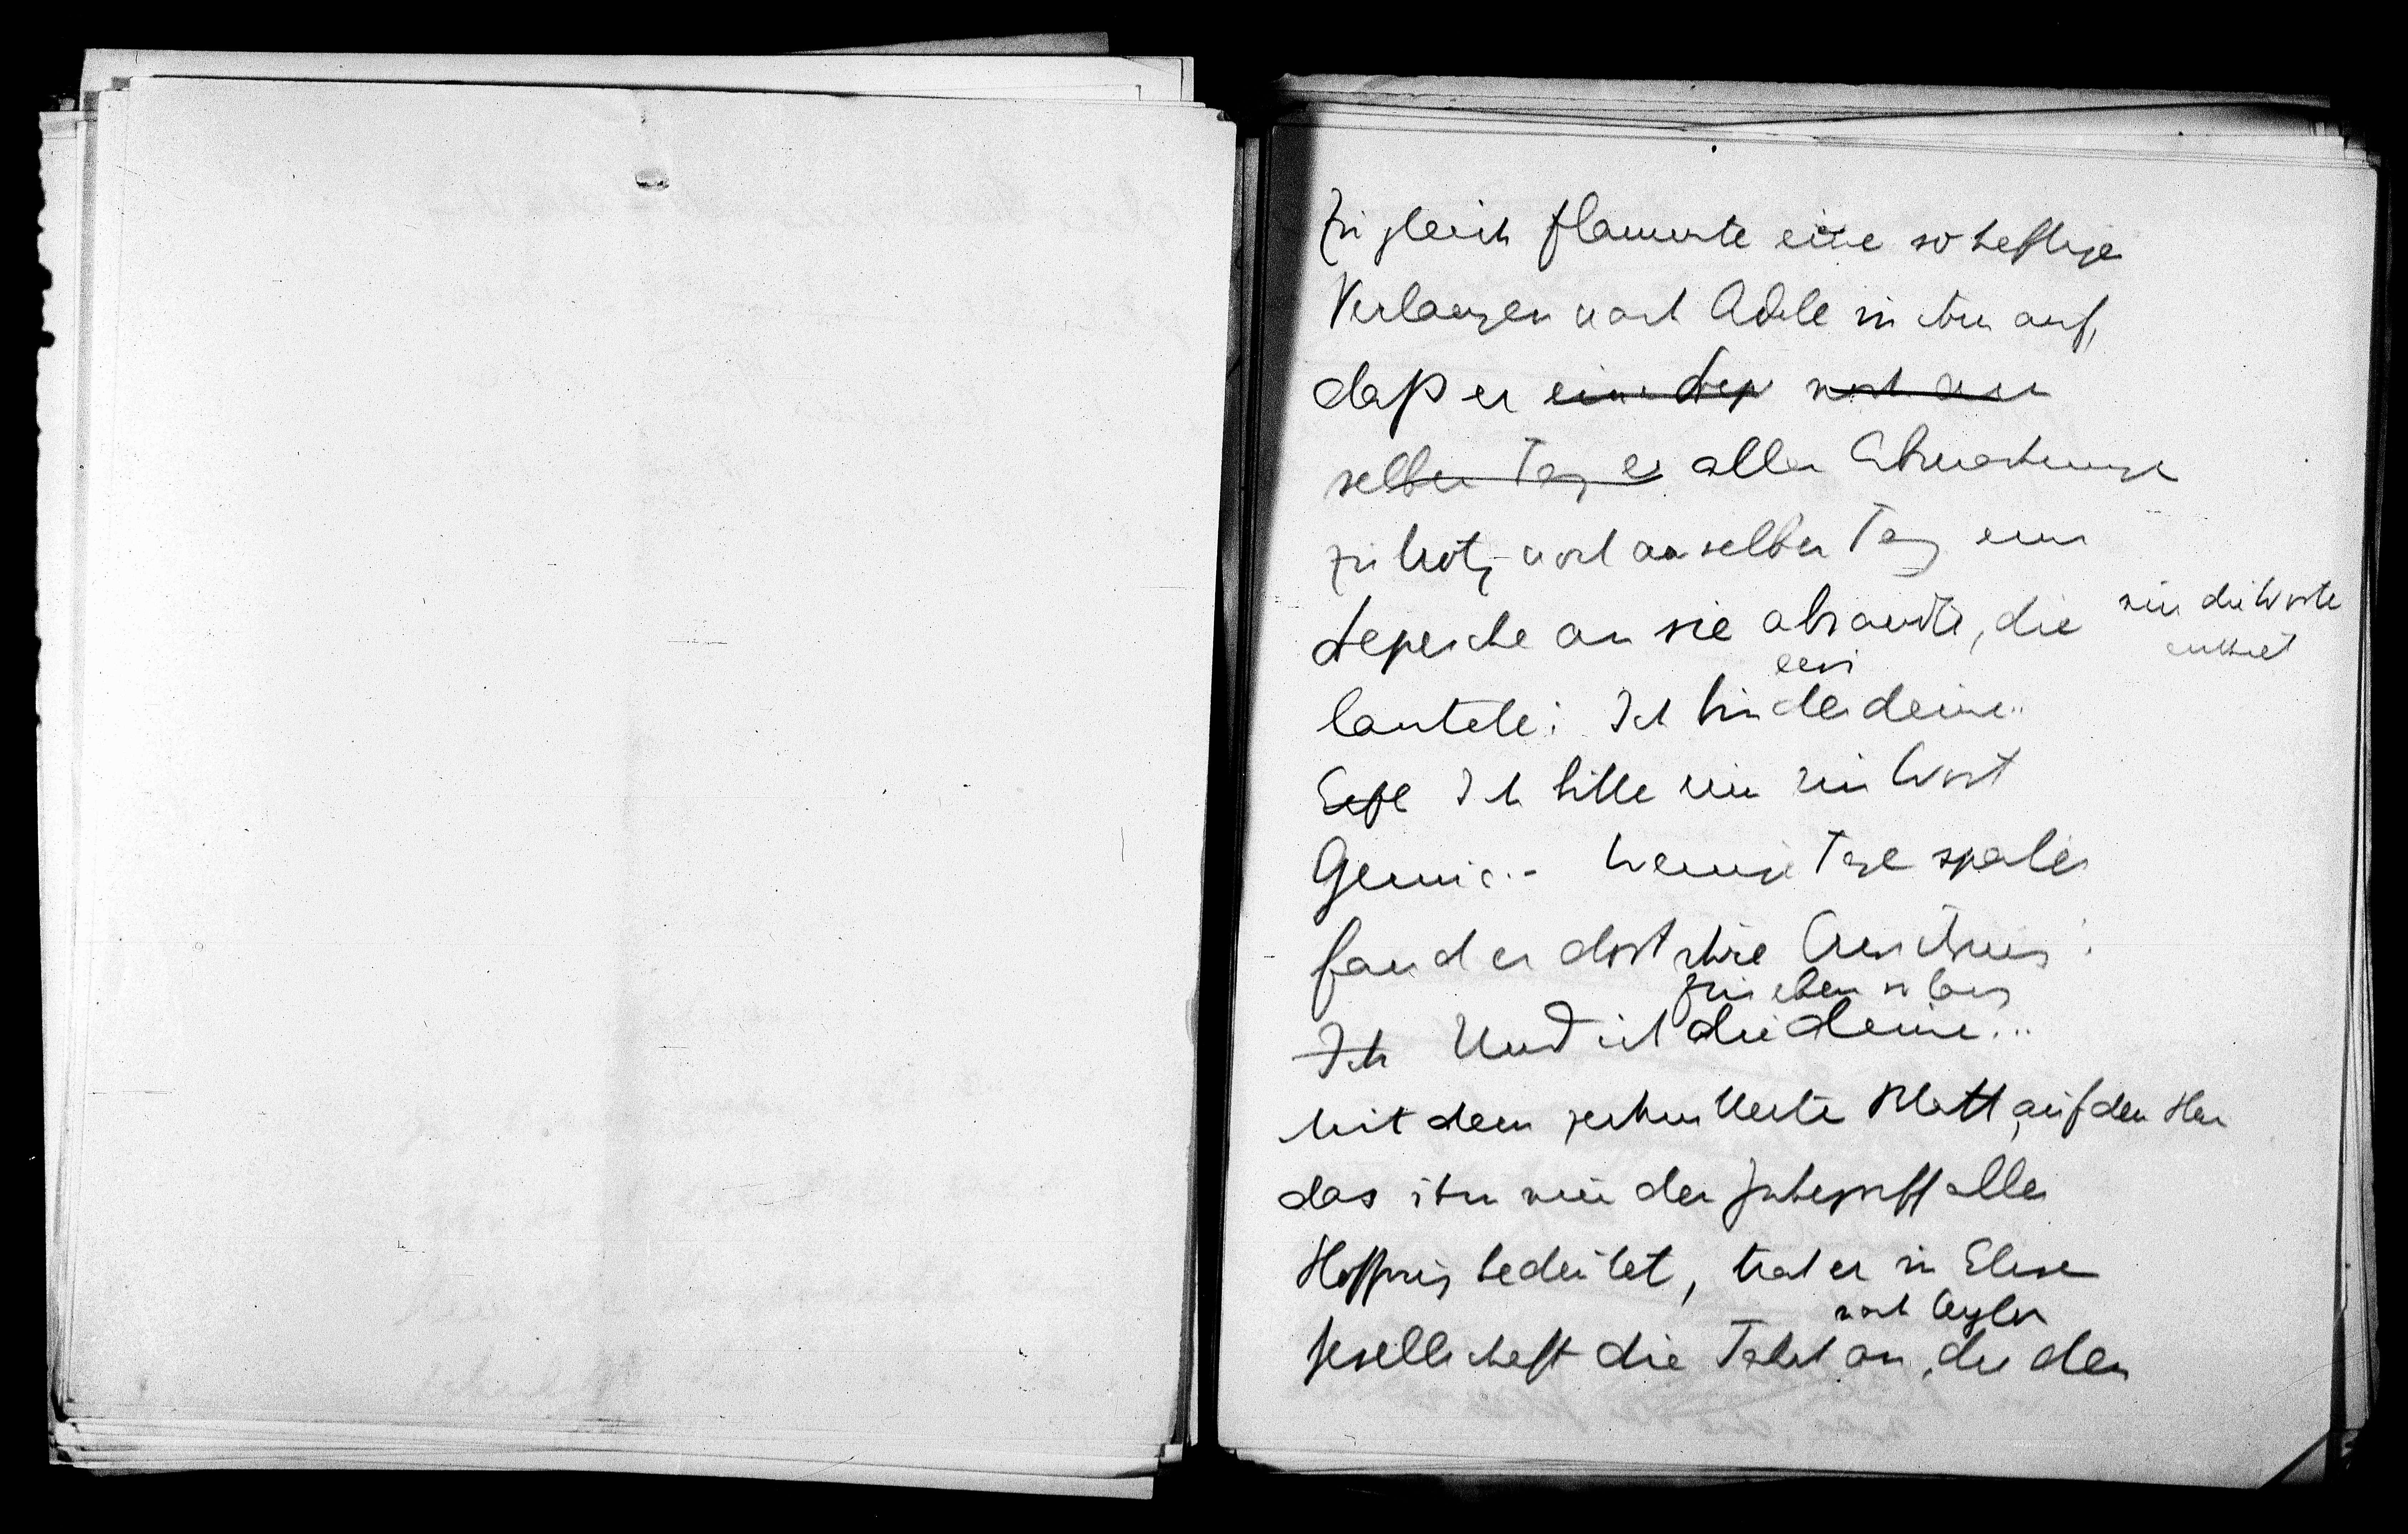 Zugleich flammte eine so heftige
Verlangen nach Adele in ihm auf,
daß er eine Dep noch am
selben Tag er aller Abmachung
zu trotz noch am selben Tag eine
Depesche an sie absandte, die nur die Worte
enthielt
lautete: Ich bin der deine..
ein
Ich bitte nur um ein Wort
Genua.- Wenige Tage später
fand er dort ihre Antwort:
für eben so lang
Ich Und ich die deine...
Mit dem zerknitterten Blatt, auf dem
das ihm nun der Inbegriff aller
Hoffnung bedeutet, trat er in Elisen
nach Ceylon
Gesellschaft die Fahrt an, die den